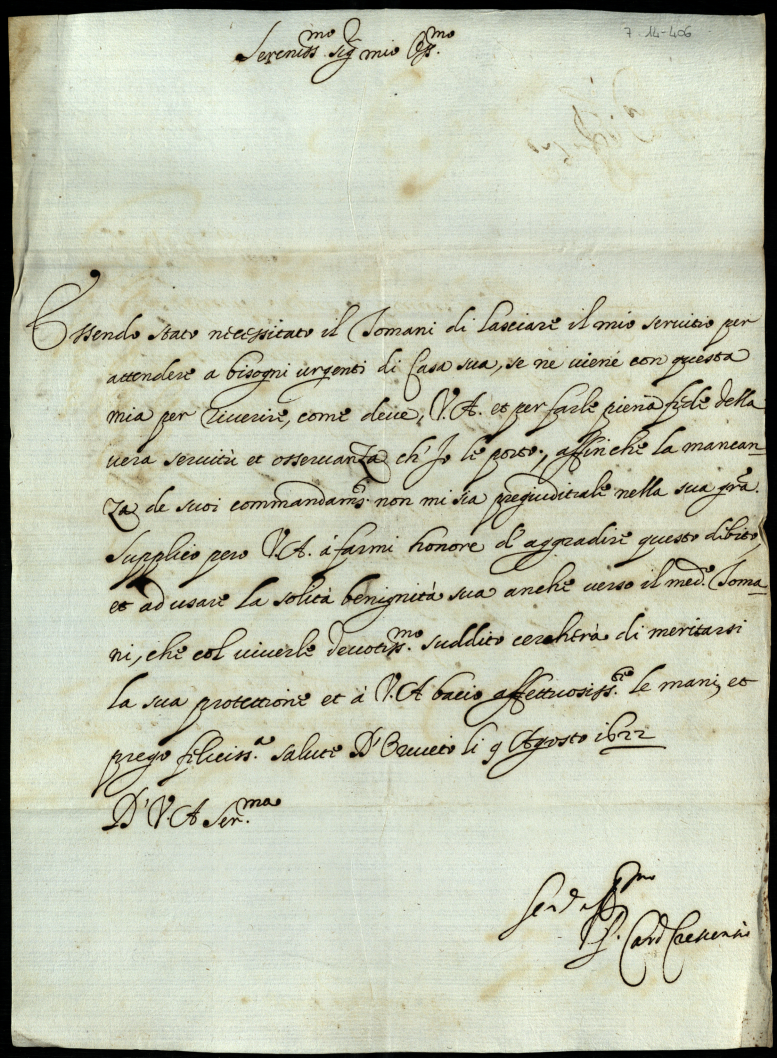 7-14-406
Sereniss.mo Sig.r mio Oss.mo
Essendo stato necessitato il Tomani di lasciare il mio servitio per
attendere a bisogni urgenti di Casa sua, se ne viene con questa
mia per riverire, come deve, V.A. et per farle piena fede della
vera servitù et osservanza ch'Io le porto; affinche la mancan-
za de suoi commandam.ti non mi sia pregiuditiale nella sua gra.
Supplico pero V.A. à farmi honore d'aggradire questo dibito,
et ad usare la solita benignità sua anche verso il med.o Toma-
ni, che col viverle devotiss.mo suddito cercherà di meritarsi
la sua protettione et à V.A bacio affettuosiss.te le mani, et
prego feliciss.a salute D'Orvieto li 9 Agosto 1622
D' V.A Ser.ma
P. Card Crescentio